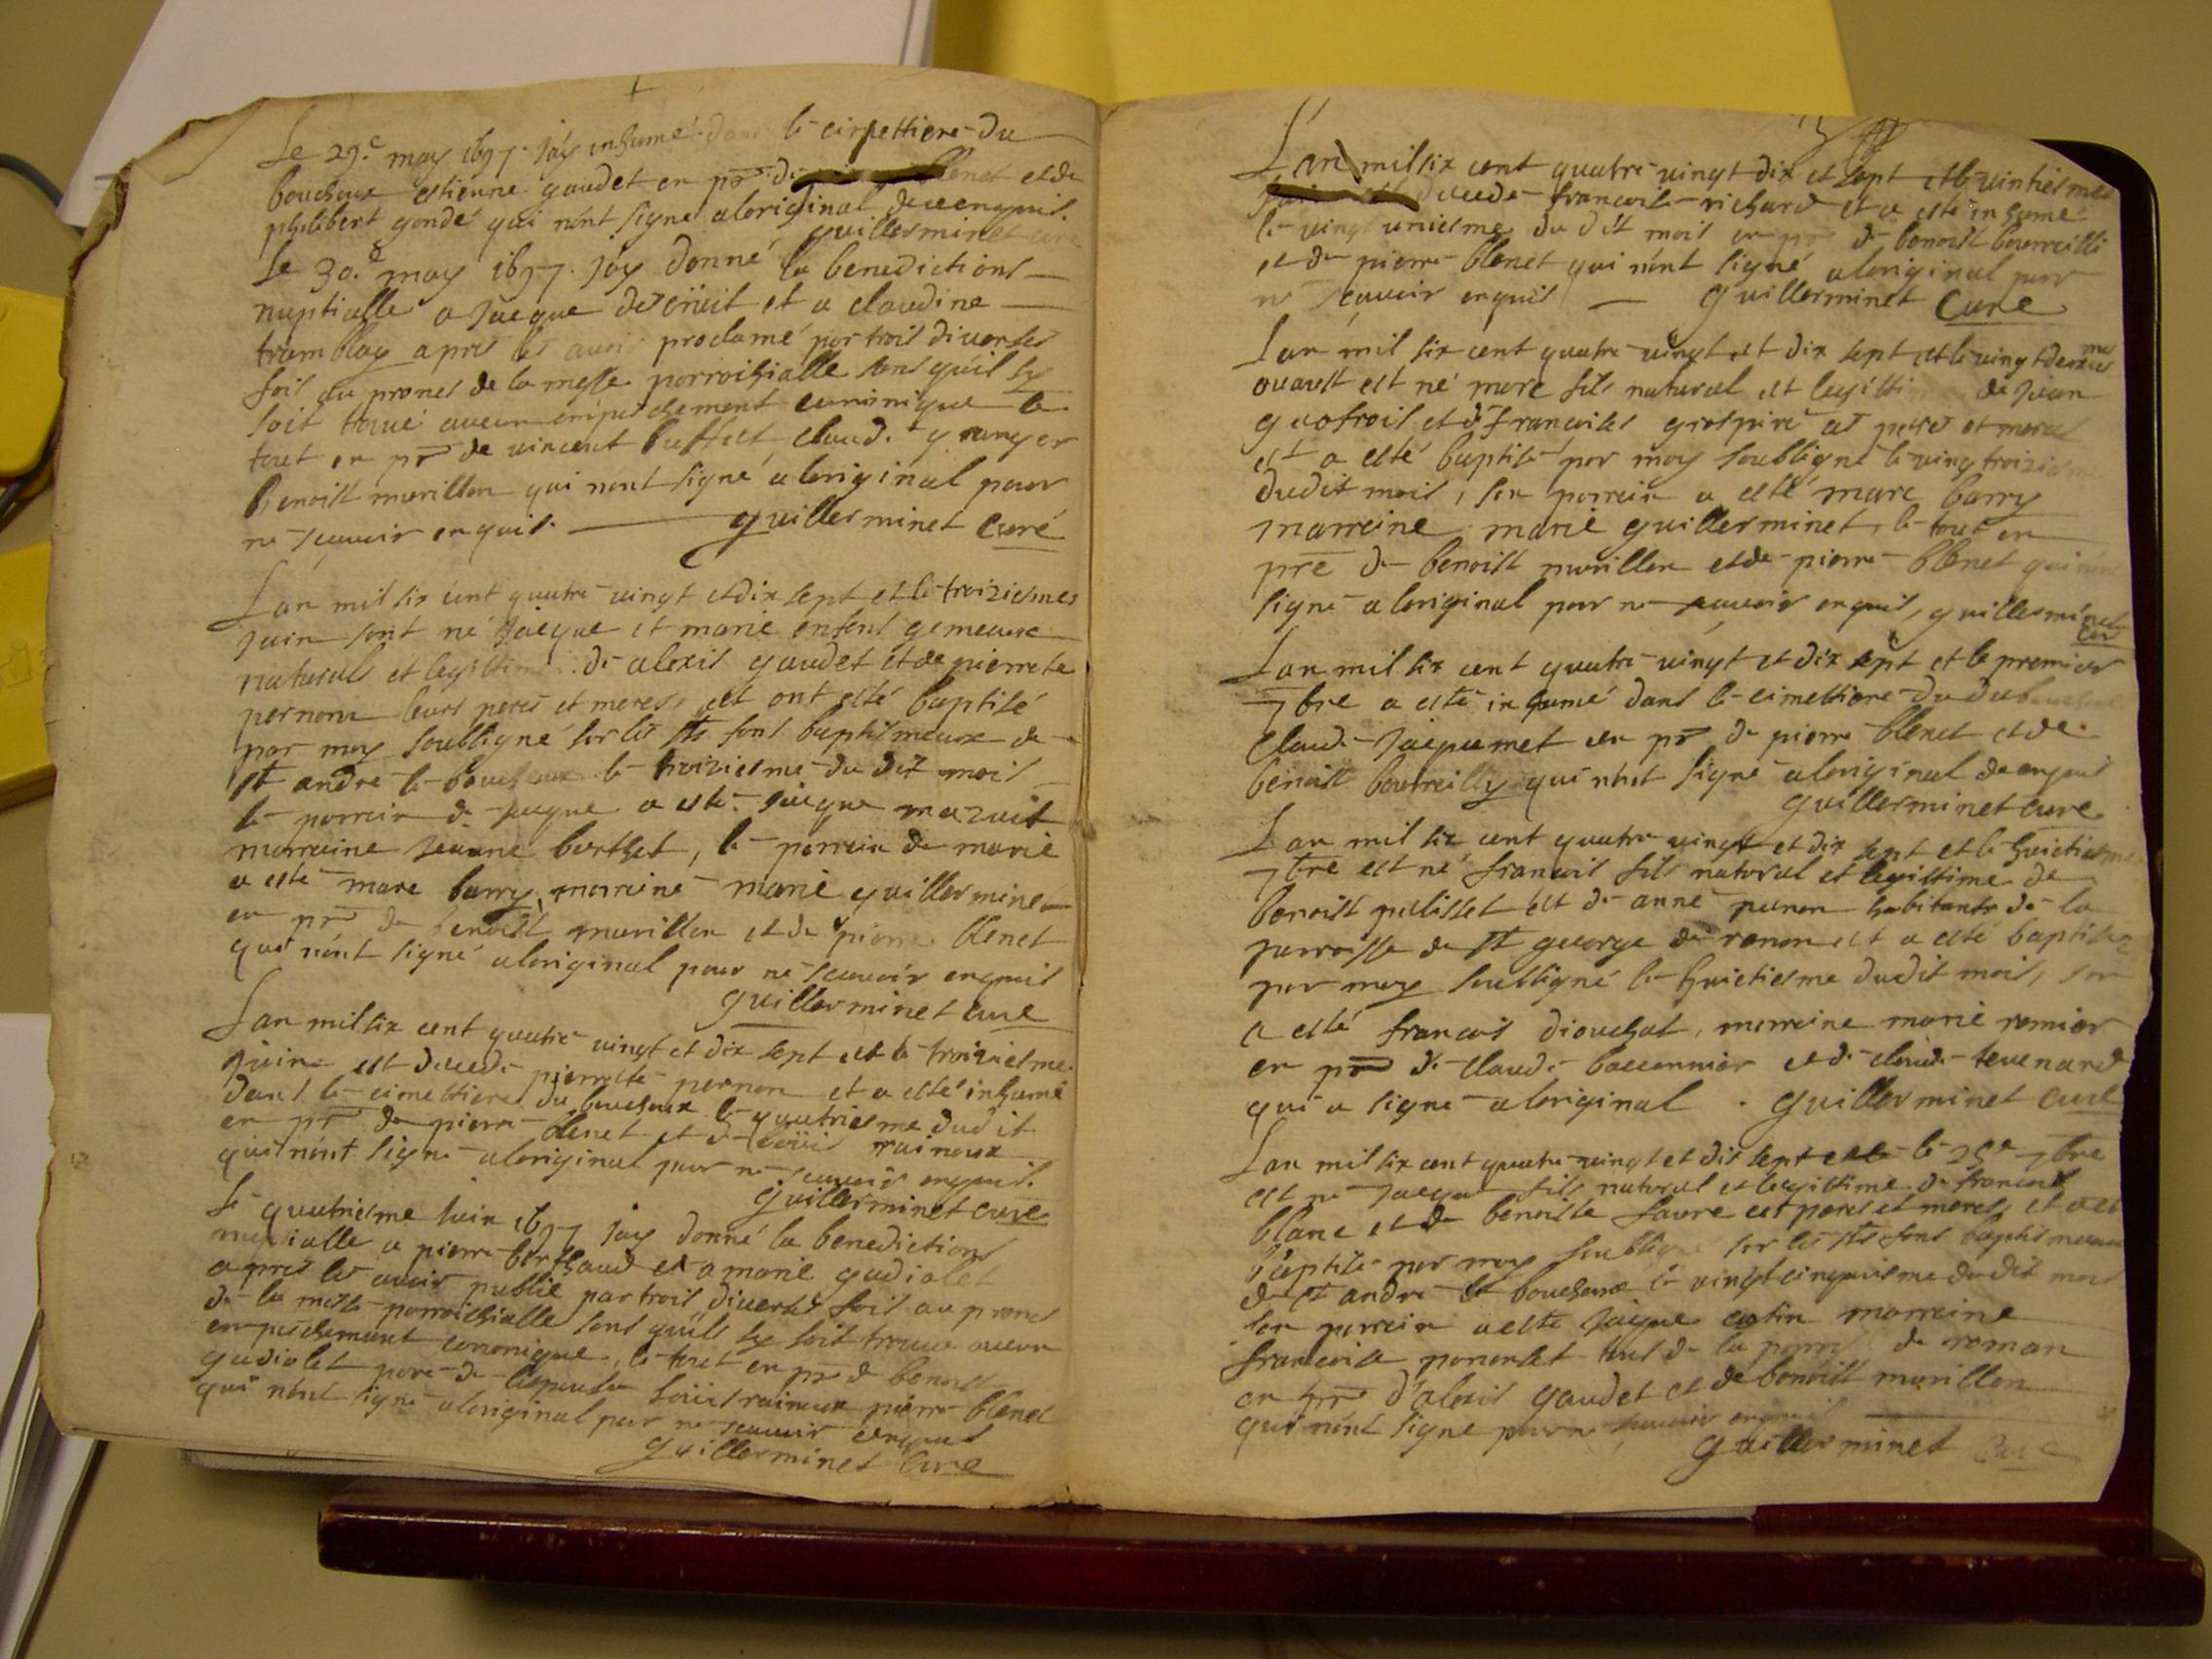 Le 29.e may 1697. jay inhumé dans le cimettiere du
bouchoux estienne gaudet en pre de blenet et de
philibert gondé qui nont signé aloriginal de ce enquis.
guillerminet cure
Le 30.e may 1697. jay donné la benedictions
nuptialle a Jacque et a claudine
tramblay apres les avoir proclamé par trois diverses
fois au prones de la messe parroissialle sans quil sy
soit trouué aucun empeschement canonique le
tout en pre de vincent buffet, claude granger
benoist murillon qui nont signé aloriginal pour
ne scauoir enquis. guillerminet Curé
Lan mil six cent quatre vingt et dix sept et le troiziesmes
juin sont né Jacque et marie enfans gemeaux
naturels et legittimes de alexis gaudet et de pierrete
pernon leurs peres et meres, et ont esté baptisé
par moy soubsigné sur les sts fons baptismaux de
st andre le bouchoux le troiziesme du dit mois
le parrein de jacque a esté jacque mazuit
marreine jeanne berthet, le parrein de marie
a esté marc barry, marreine marie guillerminet
en pre de benoist murillon et de pierre blenet
qui nont signé aloriginal pour ne scauoir enquis
guillerminet cure
Lan mil six cent quatre vingt et dix sept et le troiziesme
juin est decede pierrette pernon et a esté inhumé
dans le cimettiere du bouchoux le quatriesme dudit
en pre de pierre blenet et de loüis raineux
qui nont signe aloriginal pour ne scauoir enquis.
guillerminet cure
Le quatriesme juin 1697 jay donné la benedictions
nuptialle a pierre berthaud et a marie gudiolet
apres les avoir publié par trois diverses fois au prones
de la messe parroichialle sans quils sy soit trouue aucun
empeschement canonique, le tout en pre de benoist
gudiolet pere de lepouse loüis raineux pierre blenet
qui nont signe aloriginal pour ne scauoir enquis
guillerminet Cure
Lan mil six cent quatre vingt dix et sept et le vintiesmes
decede francois richard et a esté inhumé
le vingt uniesme du dit mois en pre de benoist bourreilli
et de pierre blenet qui nont signé aloriginal pour
ne scauoir enquis guillerminet Cure
Lan mil six cent quatre vingt et dix sept et le vingt deuxiesme
ouaust est né marc fils naturel et legitti de jean
guofrois et de francoises grospire as peres et meres
et a esté baptisé par moy soubsigné le vingtroiziesme
dudit mois, son parrein a esté marc barry
marreine marie guillerminet, le tout en
pre de benoist murillon et de pierre blenet qui nont
signe aloriginal pour ne scauoir enquis, guillerminet
cur
Lan mil six cent quatre vingt et dix sept et le premier
7bre a esté inhumé dans le cimettiere du du bouchoux
Claude Jaequemet en pre de pierre blenet et de
benoist boutreilly qui nont signé aloriginal de enquis
guillerminet cure
Lan mil six cent quatre vingt et dix sept et le huictiesme
7bre est né francois fils naturel et legittime de
benoist pelisset et de anne habitants de la
parroisse de st george de renon et a esté baptisez
par moy soubsigné le huictiesme dudit mois, son
a esté francois diouchat, marreine marie
en pre de claude baccennier et de claude tevenard
qui a signe aloriginal. guillerminet cure
Lan mil six cent quatre vingt et dis sept et le 25e 7bre
est ne jacque fils naturel et legittime de francois
blanc et de benoiste favre cest peres et meres, et a est
baptisé par moy soubsigne sur les sts fons baptismeaux
de st andre le bouchoux le vingt cinquiesme du dit mois
son parrein a esté jacque catin marreine
francoise ponenset tous de la parr de roman
en pre d'alexis gaudet et de benoist murillon
qui nont signe pour ne scauoir enquis
guillerminet Cure